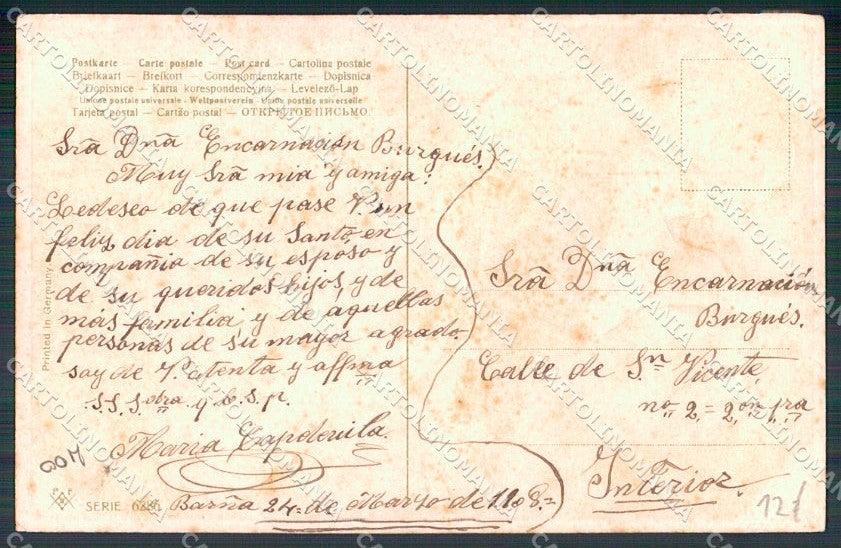 Postkarte — Carte postale — Post card — Cartolina postale
Briefkaart — Brefkort — Correspondenzkarte — Dopisnica
Dopisnice — Karta korespondencyjna — Levelező-Lap
Unione postale universale - Weltpostverein - Union postale universelle
Tarjeta postal — Cartão postal — ОТКРЫТОЕ ПИСЬМО.
Srã Dñã Encarnación Burgués.
Muy Srã mia y amiga:
Le deseo de que pase V. un
feliz dia de su Santo, en
compañia de su esposo y
de su queridos hijos, y de
más familia, y de áquellas
personas de su mayor agrado.
soy de V. atenta y affma
S.S.S. y B.S.p.
Maria Capdevila.
Barña 24 de Marzo de
Printed in Germany
SERIE
Srã Dñã Encarnación
Burgués.
Calle de Sn Vicente,
no 2 = 2on pra
Interior.
CARTOLINOMANIA